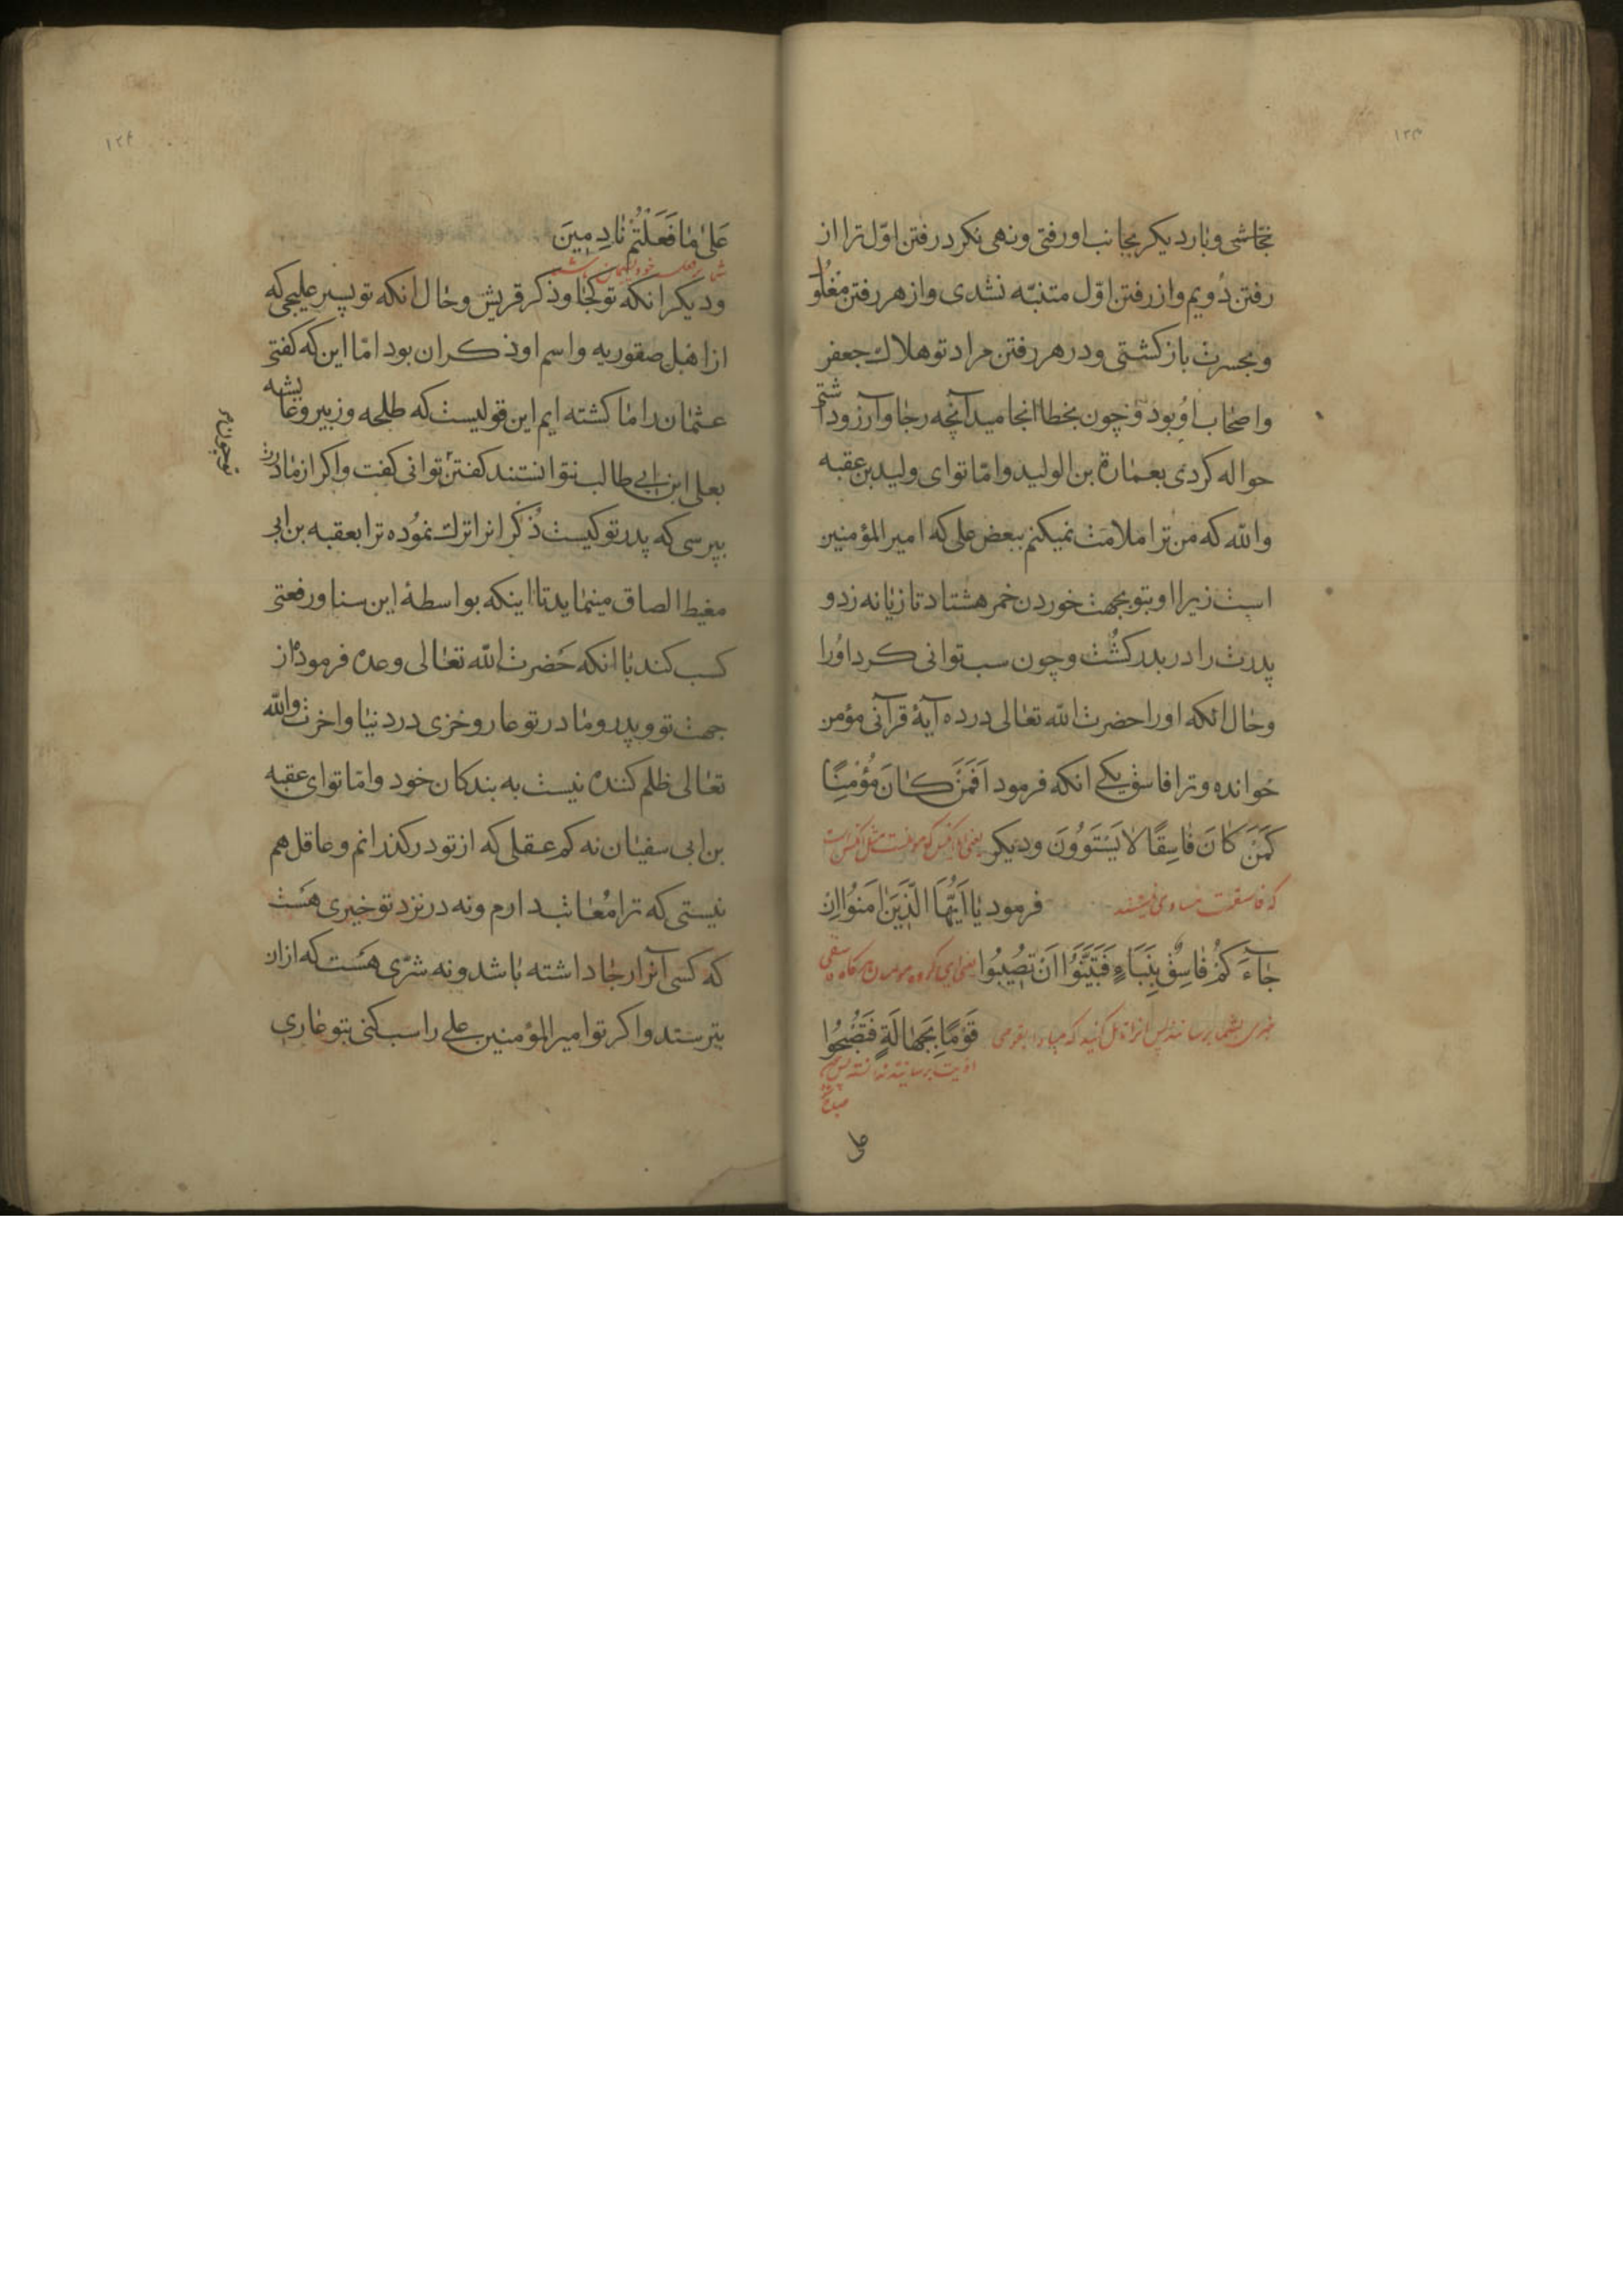 ۱۲۳
نجاشی و بار دیکر بجانب او رفتی و نهی نکرد رفتن اوّل ترا از
رفتن دویم و از رفتن اوّل متنبّه نشدی و از هر رفتن مغلو
و بحسرت باز کشتی و در هر رفتن مراد تو هلاك جعفر
و اصحاب او بود و چون بخطا انجامید آنچه رجا و آرزو داشتی
حواله کردی بعمارة بن الولید و امّا تو ای ولید بن عقبه
والله که من ترا ملامت نمیکنم ببعض علی که امیر المؤمنین
است زیرا او بتو بجهت خوردن خمر هشتاد تازیانه زد و
پدرت را در بدر کشت و چون سب توانی کرد او را
و حال انکه او را حضرت الله تعالی در ده آیۀ قرآنی مؤمن
خوانده و ترا فاسق یکی انکه فرمود اَفَمَنْ كانَ مُؤْمِنًا
كَمَنْ كانَ فاسِقًا لا يَسْتَوُونَ و دیکر یعنی آیا آنکس که مؤمنست مثل آنکس است
که فاسقست مساوی نیستند فرمود يا اَيُّهَا الَّذينَ امَنُوا اِنْ
جآءَكُمْ فاسِقٌ بِنَبَاءٍ فَتَبَيَّنُوا اَنْ تُصيبُوا یعنی ای کروه مومنان هرکاه فاسقی
خبری بشما برساند پس انرا تامل کنید که مبادا بقومی قَوْمًا بِجَهالَةٍ فَتُصْبِحُوا
اذیت برسانید ندانسته پس
صباح
علی
۱۲۴
عَلى ما فَعَلْتُمْ نادِمينَ
شما بر فعل خود پشیمان باشید
و دیکر انکه تو کجا و ذکر قریش و حال انکه تو پسر علیجی که
از اهل صقوریه و اسم او ذکران بود امّا این که کفتی
عثمان را ما کشته ایم این قولیست که طلحه و زبیر و عایشه
بعلی ابن ابی طالب نتوانستند کفتن توانی کفت و اکر از مادرت
تو چون
بپرسی که پدر تو کیست ذکر انرا ترك نموده ترا بعقبه بن ابی
مغیط الصاق مینماید تا اینکه بواسطۀ این سنا و رفعتی
کسب کند با انکه حضرت الله تعالی وعده فرموده از
جهت تو و پدر و مادر تو عار و خزی در دنیا و اخرت والله
تعالی ظلم کننده نیست به بندکان خود و امّا تو ای عقبه
بن ابی سفیان نه کم عقلی که از تو در کذرانم و عاقل هم
نیستی که ترا معاتب دارم و نه در نزد تو خیری هست
که کسی آنرا رجا داشته باشد و نه شرّی هست که از ان
بترسند و اکر تو امیر المؤمنین علی را سب کنی بتو عاری